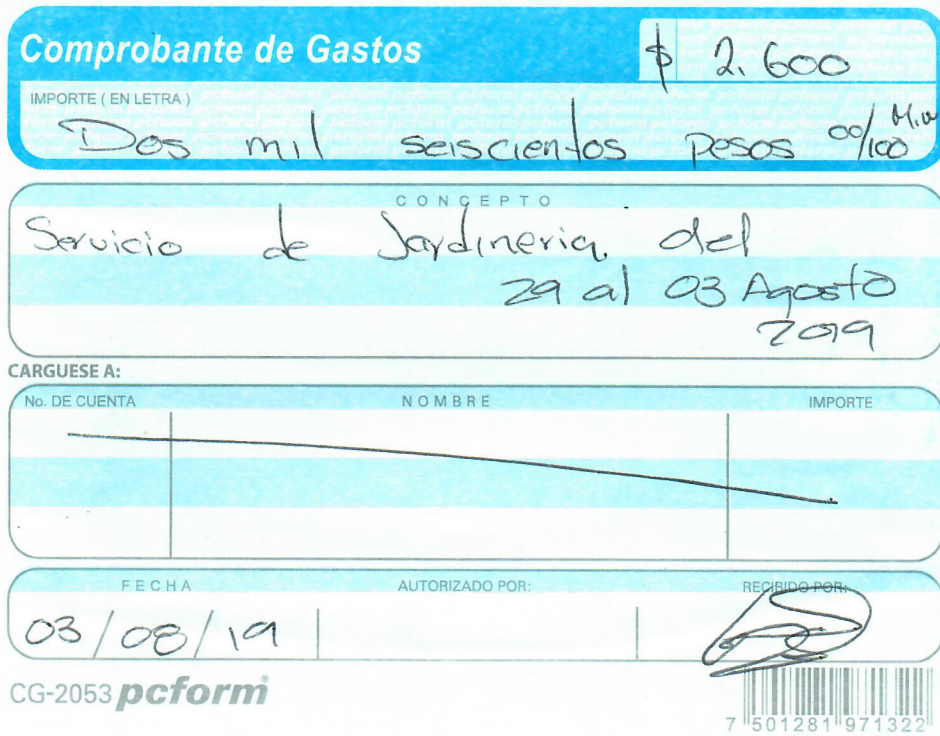 Comprobante de Gastos
$ 2.600
IMPORTE ( EN LETRA )
Dos mil seiscientos pesos 00/100 M.N
CONCEPTO
Servicio de Jardineria del
29 al 03 Agosto
2019
CARGUESE A:
No. DE CUENTA NOMBRE IMPORTE
FECHA AUTORIZADO POR: RECIBIDO POR:
03/08/19
CG-2053 pcform
7 501281 971322